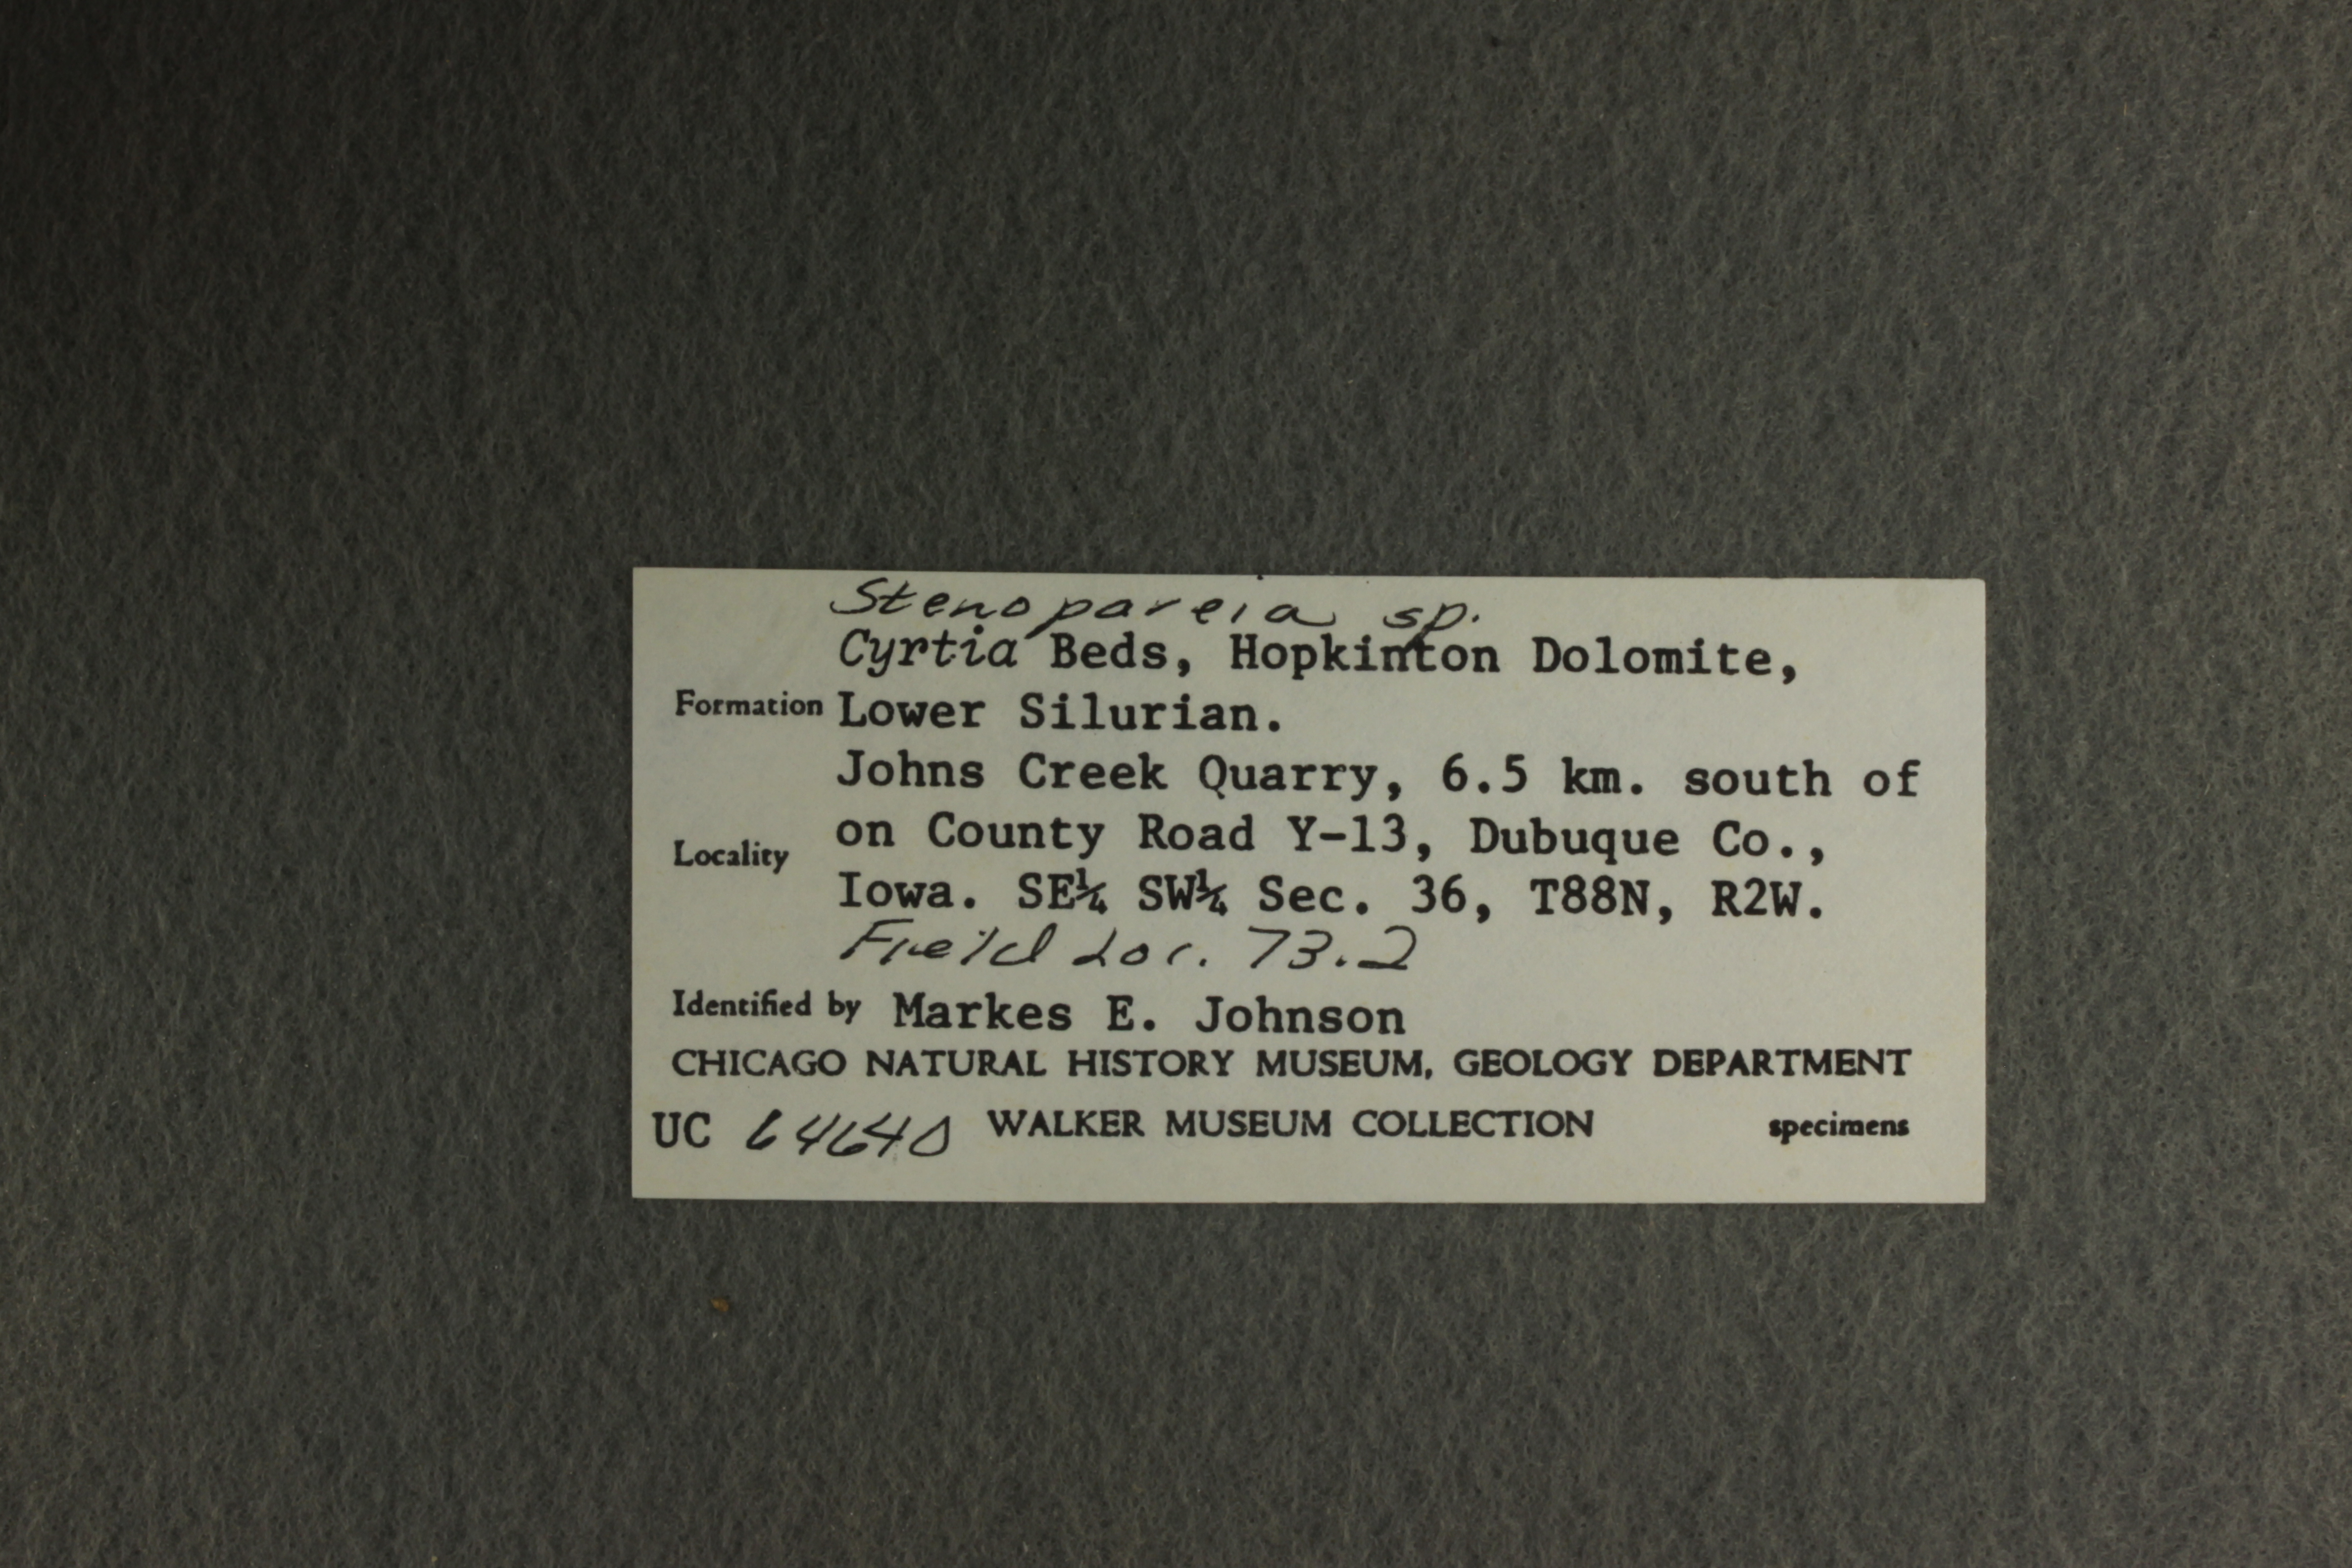 Stenopareia sp.
Cyrtia Beds, Hopkinton Dolomite,
Formation Lower Silurian.
Johns Creek Quarry, 6.5 km. south of
on County Road Y-13, Dubuque Co.,
Locality
Iowa. SE¼ SW¼ Sec. 36, T88N, R2W.
Field Loc. 73.2
Identified by Markes E. Johnson
CHICAGO NATURAL HISTORY MUSEUM, GEOLOGY DEPARTMENT
UC 64640 WALKER MUSEUM COLLECTION specimens